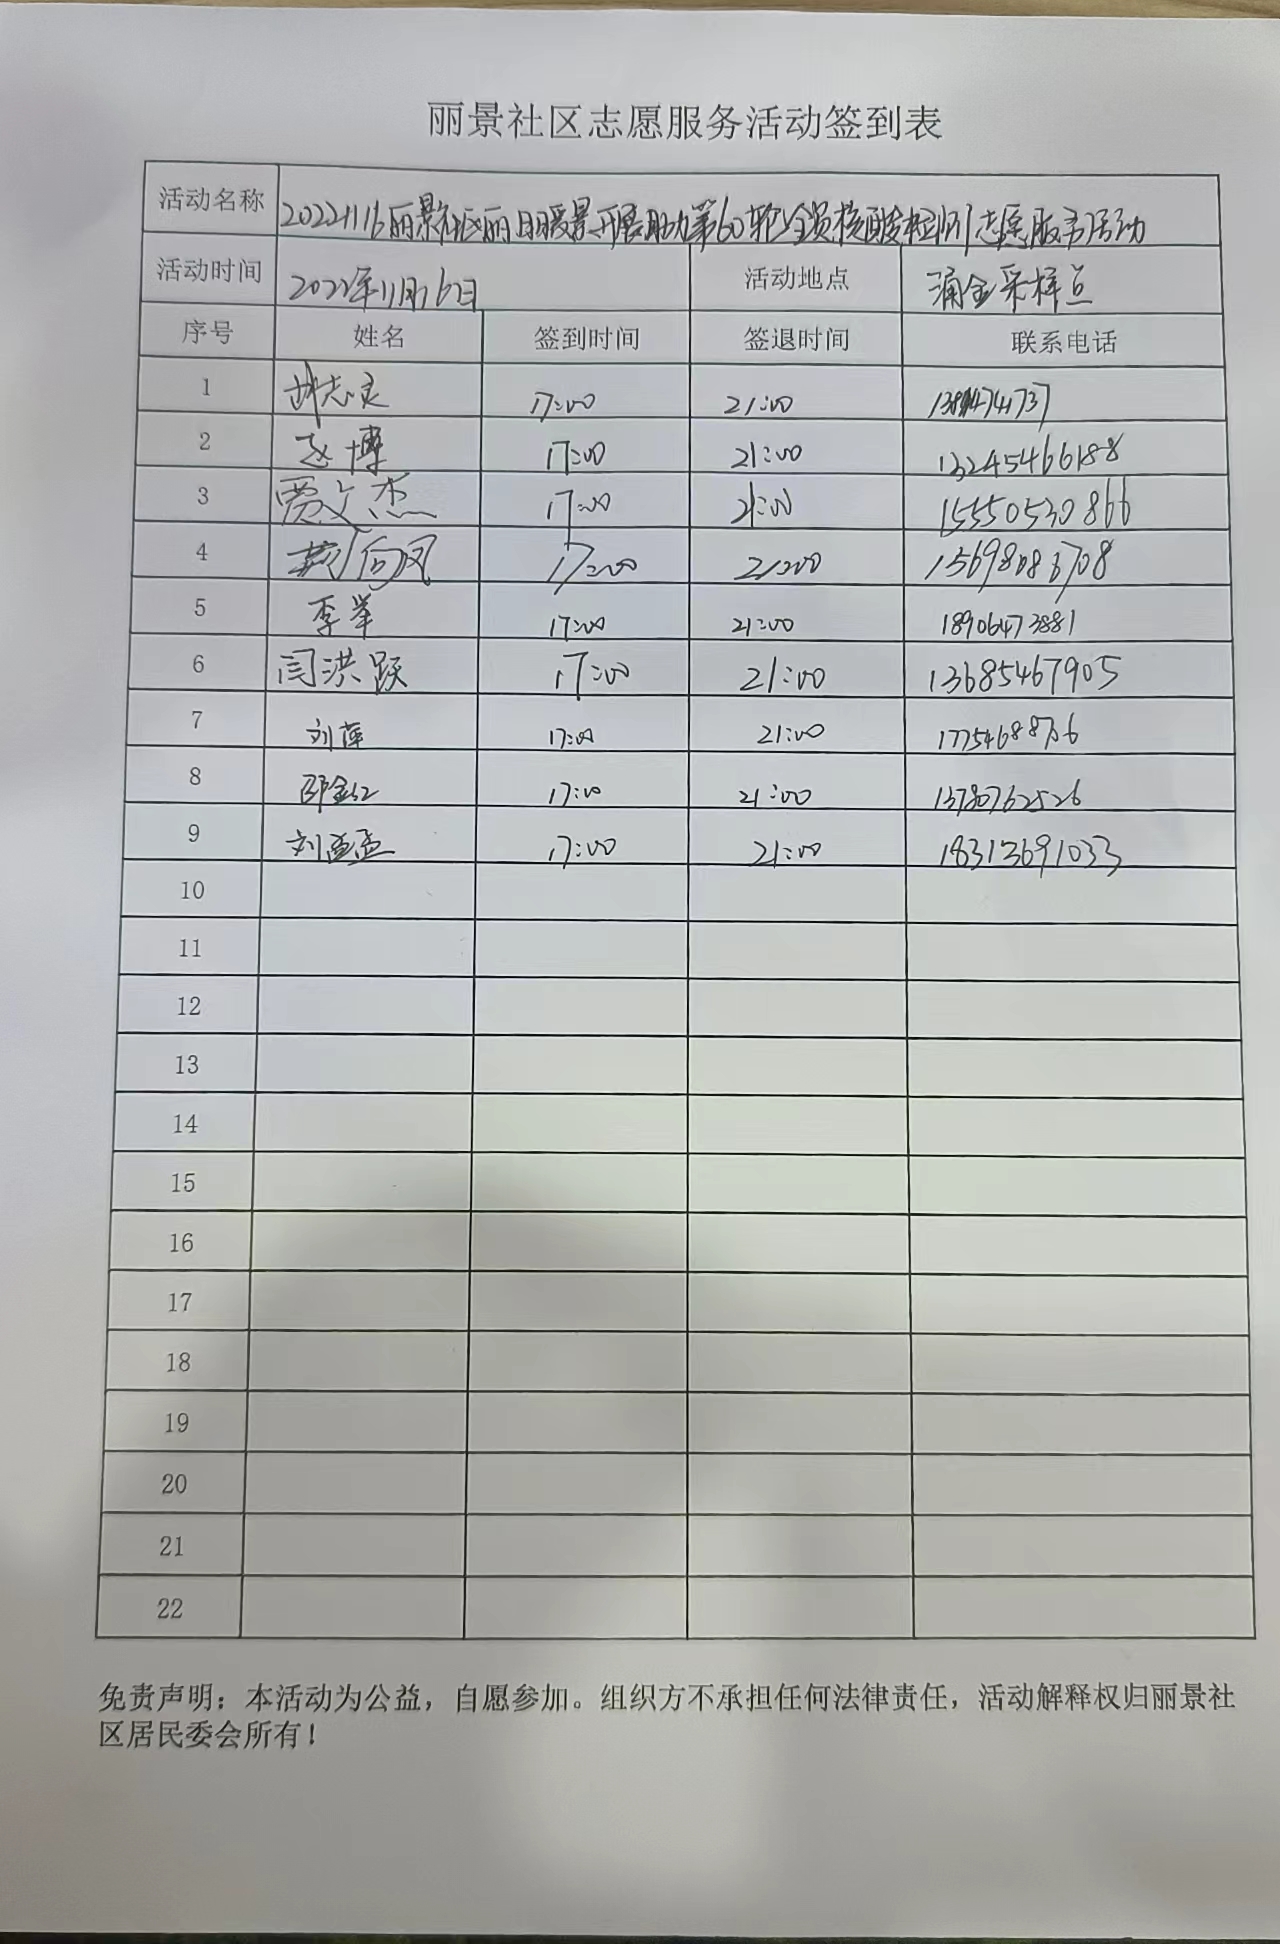 丽景社区志愿服务活动签到表
活动名称 20221116丽景社区丽日暖景开展助力第60轮全员核酸检测志愿服务活动
活动时间 2022年11月16日 活动地点 涌金采样点
序号 姓名 签到时间 签退时间 联系电话
1 志灵 17:00 21:00
2 赵博 17:00 21:00 13245466188
3 贾文杰 17:00 21:00 15550530866
4 向风 17:00 21:00 15698083708
5 李举 17:00 21:00 18906473881
6 闫洪跃 17:00 21:00 13685467905
7 刘萍 17:00 21:00
8 邵金红 17:00 21:00 13780762526
9 刘孟孟 17:00 21:00 18313691033
10
11
12
13
14
15
16
17
18
19
20
21
22
免责声明：本活动为公益，自愿参加。组织方不承担任何法律责任，活动解释权归丽景社
区居民委会所有！